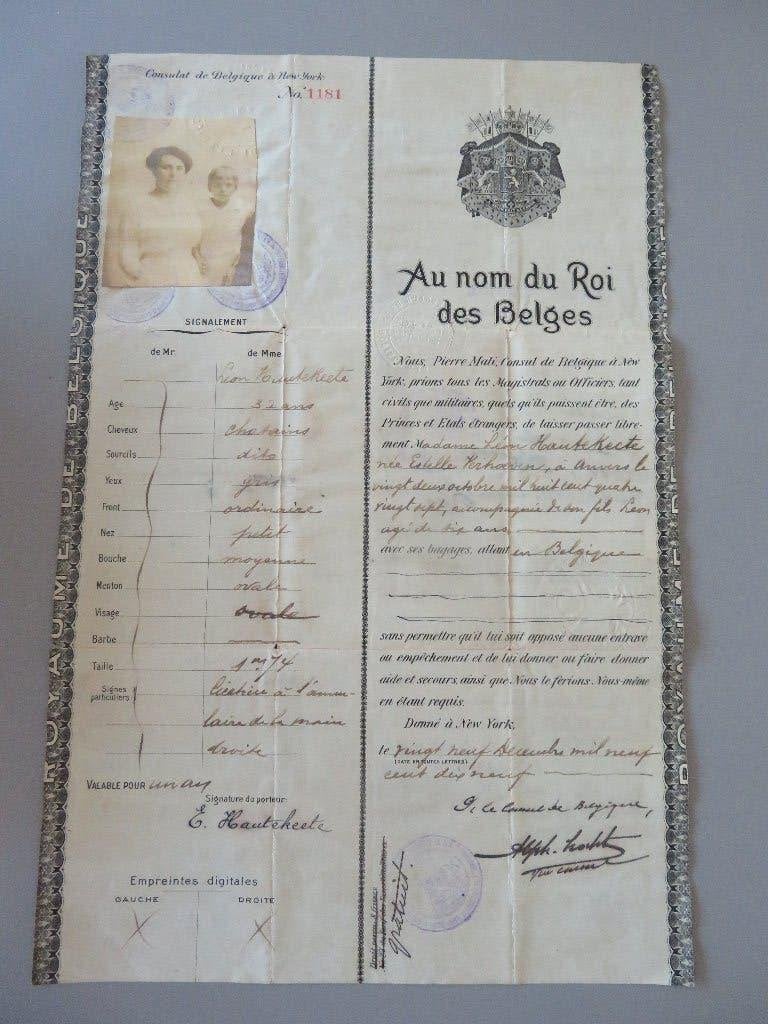 Consulat de Belgique à New York
No. 1181
SIGNALEMENT
de Mr de Mme
Léon Hautekeete
Age 32 ans
Cheveux chatains
Sourcils dito
Yeux gris
Front ordinaire
Nez petit
Bouche moyenne
Menton ovale
Visage ovale
Barbe
Taille 1m74
Signes particuliers à l'annu-
laire de la main
droite
VALABLE POUR un an
Signature du porteur:
E. Hautekeete
Empreintes digitales
GAUCHE DROITE
X X
ROYAUME DE BELGIQUE
Au nom du Roi
des Belges
Nous, Pierre Mali, Consul de Belgique à New
York, prions tous les Magistrats ou Officiers, tant
civils que militaires, quels qu'ils puissent être, des
Princes et Etats étrangers, de laisser passer libre-
ment Madame Léon Hautekeete
née Estelle à Anvers le
vingt deux octobre mil huit cent quatre
vingt sept, accompagnée de son fils Léon
agé de six ans
avec ses bagages, allant en Belgique
sans permettre qu'il lui soit opposé aucune entrave
ou empêchement et de lui donner ou faire donner
aide et secours, ainsi que Nous le ferions Nous-même
en étant requis.
Donné à New York,
le vingt neuf Decembre mil neuf
(DATE EN TOUTES LETTRES)
cent dix neuf
le Consul de Belgique,
Alph.
gratuit.
ROYAUME DE BELGIQUE